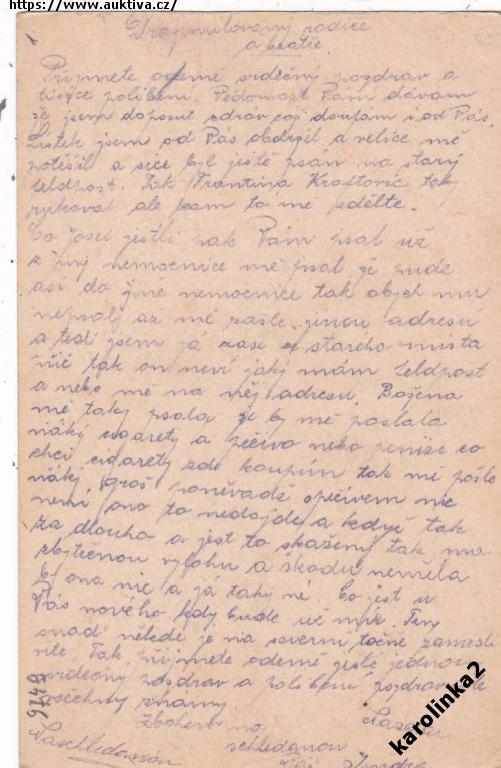 https://www.auktiva.cz/
Drazí milovaný rodiče
a bratře.
Přijmete odemě srdečný pozdrav a
tisíce políbení. Vědomost Vám dávám
že jsem doposut zdrav což doufám i od Vás.
Lístek jsem od Vás obdržel a velice mě
potěšil a sice byl ještě psan na starý
feldpost. Tak Frantina taky
rukoval ale kam to mě zdělte.
Co Josef jestli pak Vám psal už
z jiný nemocnice mě psal že pude
asi do jiné nemocnice tak abych mu
nepsal až mě pošle jinou adresu
a tedi jsem já zase z starého místa
tak on neví jaký mám feldpost
a nebo mé na něj adresu. Božena
mě taky psala že by mě poslala
náký cigarety a pečivo nebo peníze co
chci cigarety zde koupím tak mě pošle
náký groš poněvadž spečivem nic
není, ono to nedojde a když tak
za dlouho a jest to skažený tak
zbytečnou vylohu a škodu neměla
by ona nic a já taky né. Co jest u
Vás nového kdy bude už mír. Ten
snad nebude je na severní točně zamrzli
Tak přijmete odemě ještě jednou
srdečný pozdrav a políbení pozdravujte
všechny známy
Zbohem na
schledanou
Váš Jindra
9249
karolinka2